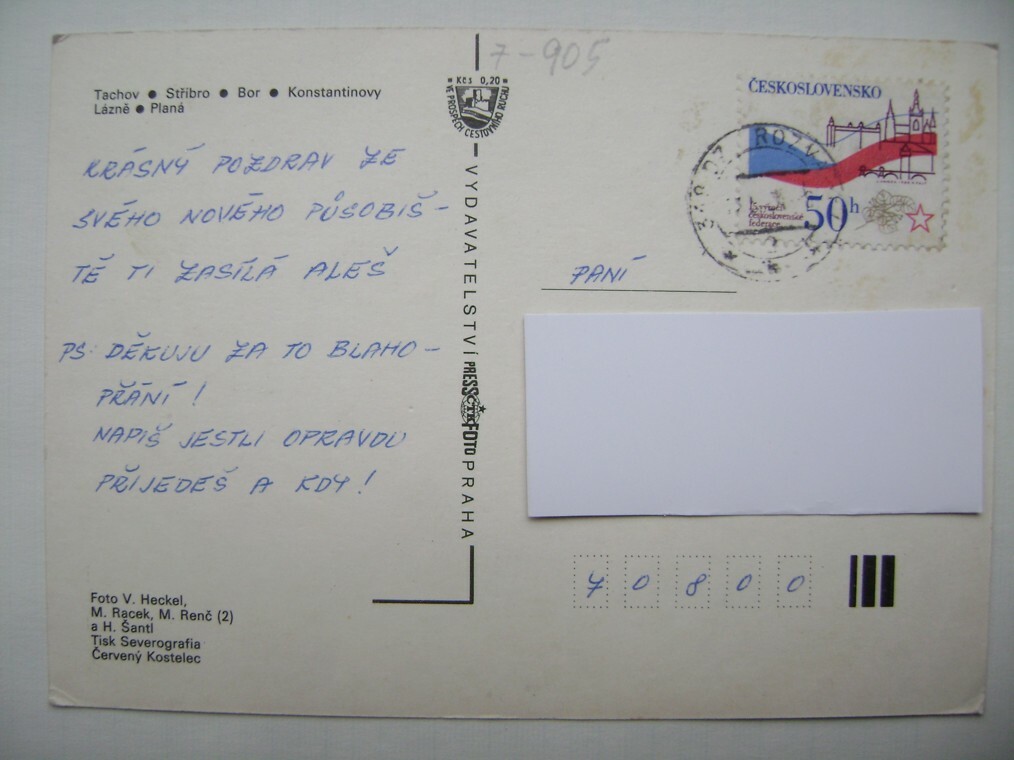 7-905
Tachov ● Stříbro ● Bor ● Konstantinovy
Lázně ● Planá
Kčs 0,20
VE PROSPĚCH CESTOVNÍHO RUCHU
ČESKOSLOVENSKO
50h
československé
federace
KRÁSNÝ POZDRAV ZE
SVÉHO NOVÉHO PŮSOBIŠ-
TĚ TI ZASÍLÁ ALEŠ
PS: DĚKUJU ZA TO BLAHO-
PŘÁNÍ!
NAPIŠ JESTLI OPRAVDU
PŘIJEDEŠ A KDY!
VYDAVATELSTVÍ PRESSFOTO PRAHA
ČTK
PANÍ
7 0 8 0 0
Foto V. Heckel,
M. Racek, M. Renč (2)
a H. Šantl
Tisk Severografia
Červený Kostelec